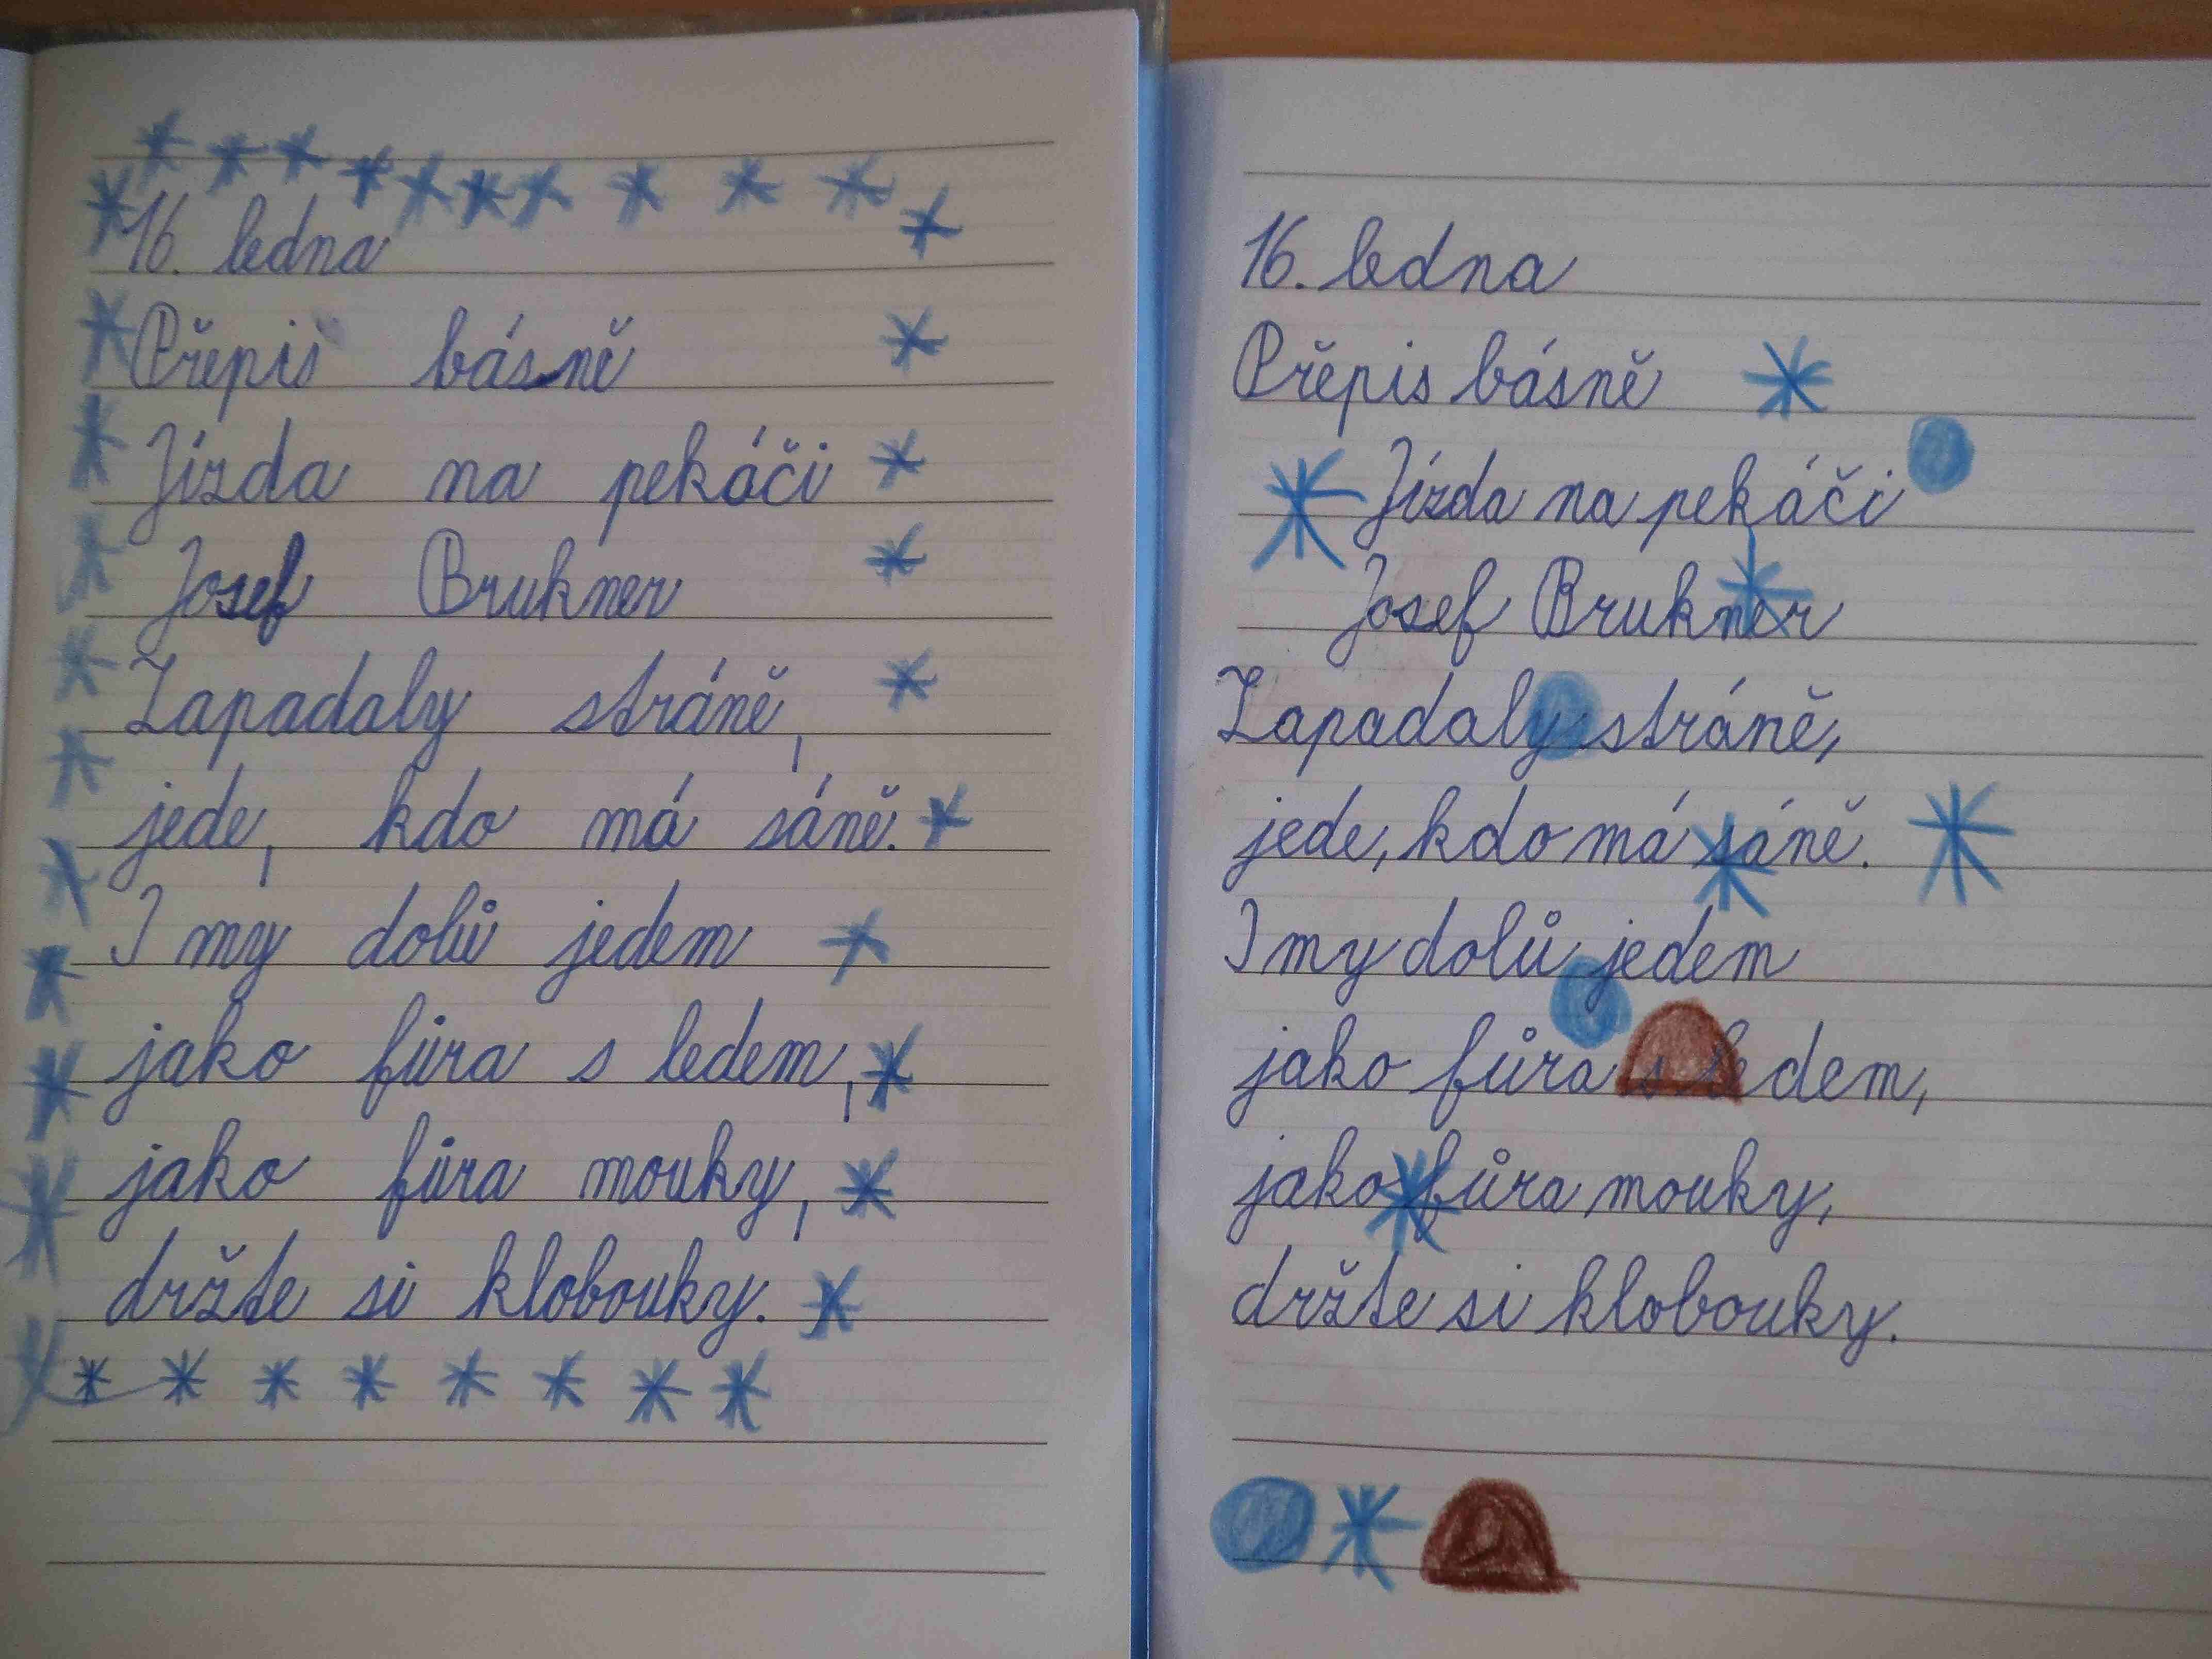 16. ledna
Přepis básně
Jízda na pekáči
Josef Brukner
Zapadaly stráně,
jede, kdo má sáně.
I my dolů jedem
jako fůra s ledem,
jako fůra mouky,
držte si klobouky.
16. ledna
Přepis básně
Jízda na pekáči
Josef Brukner
Zapadaly stráně,
jede, kdo má sáně.
I my dolů jedem
jako fůra s ledem,
jako fůra mouky,
držte si klobouky.